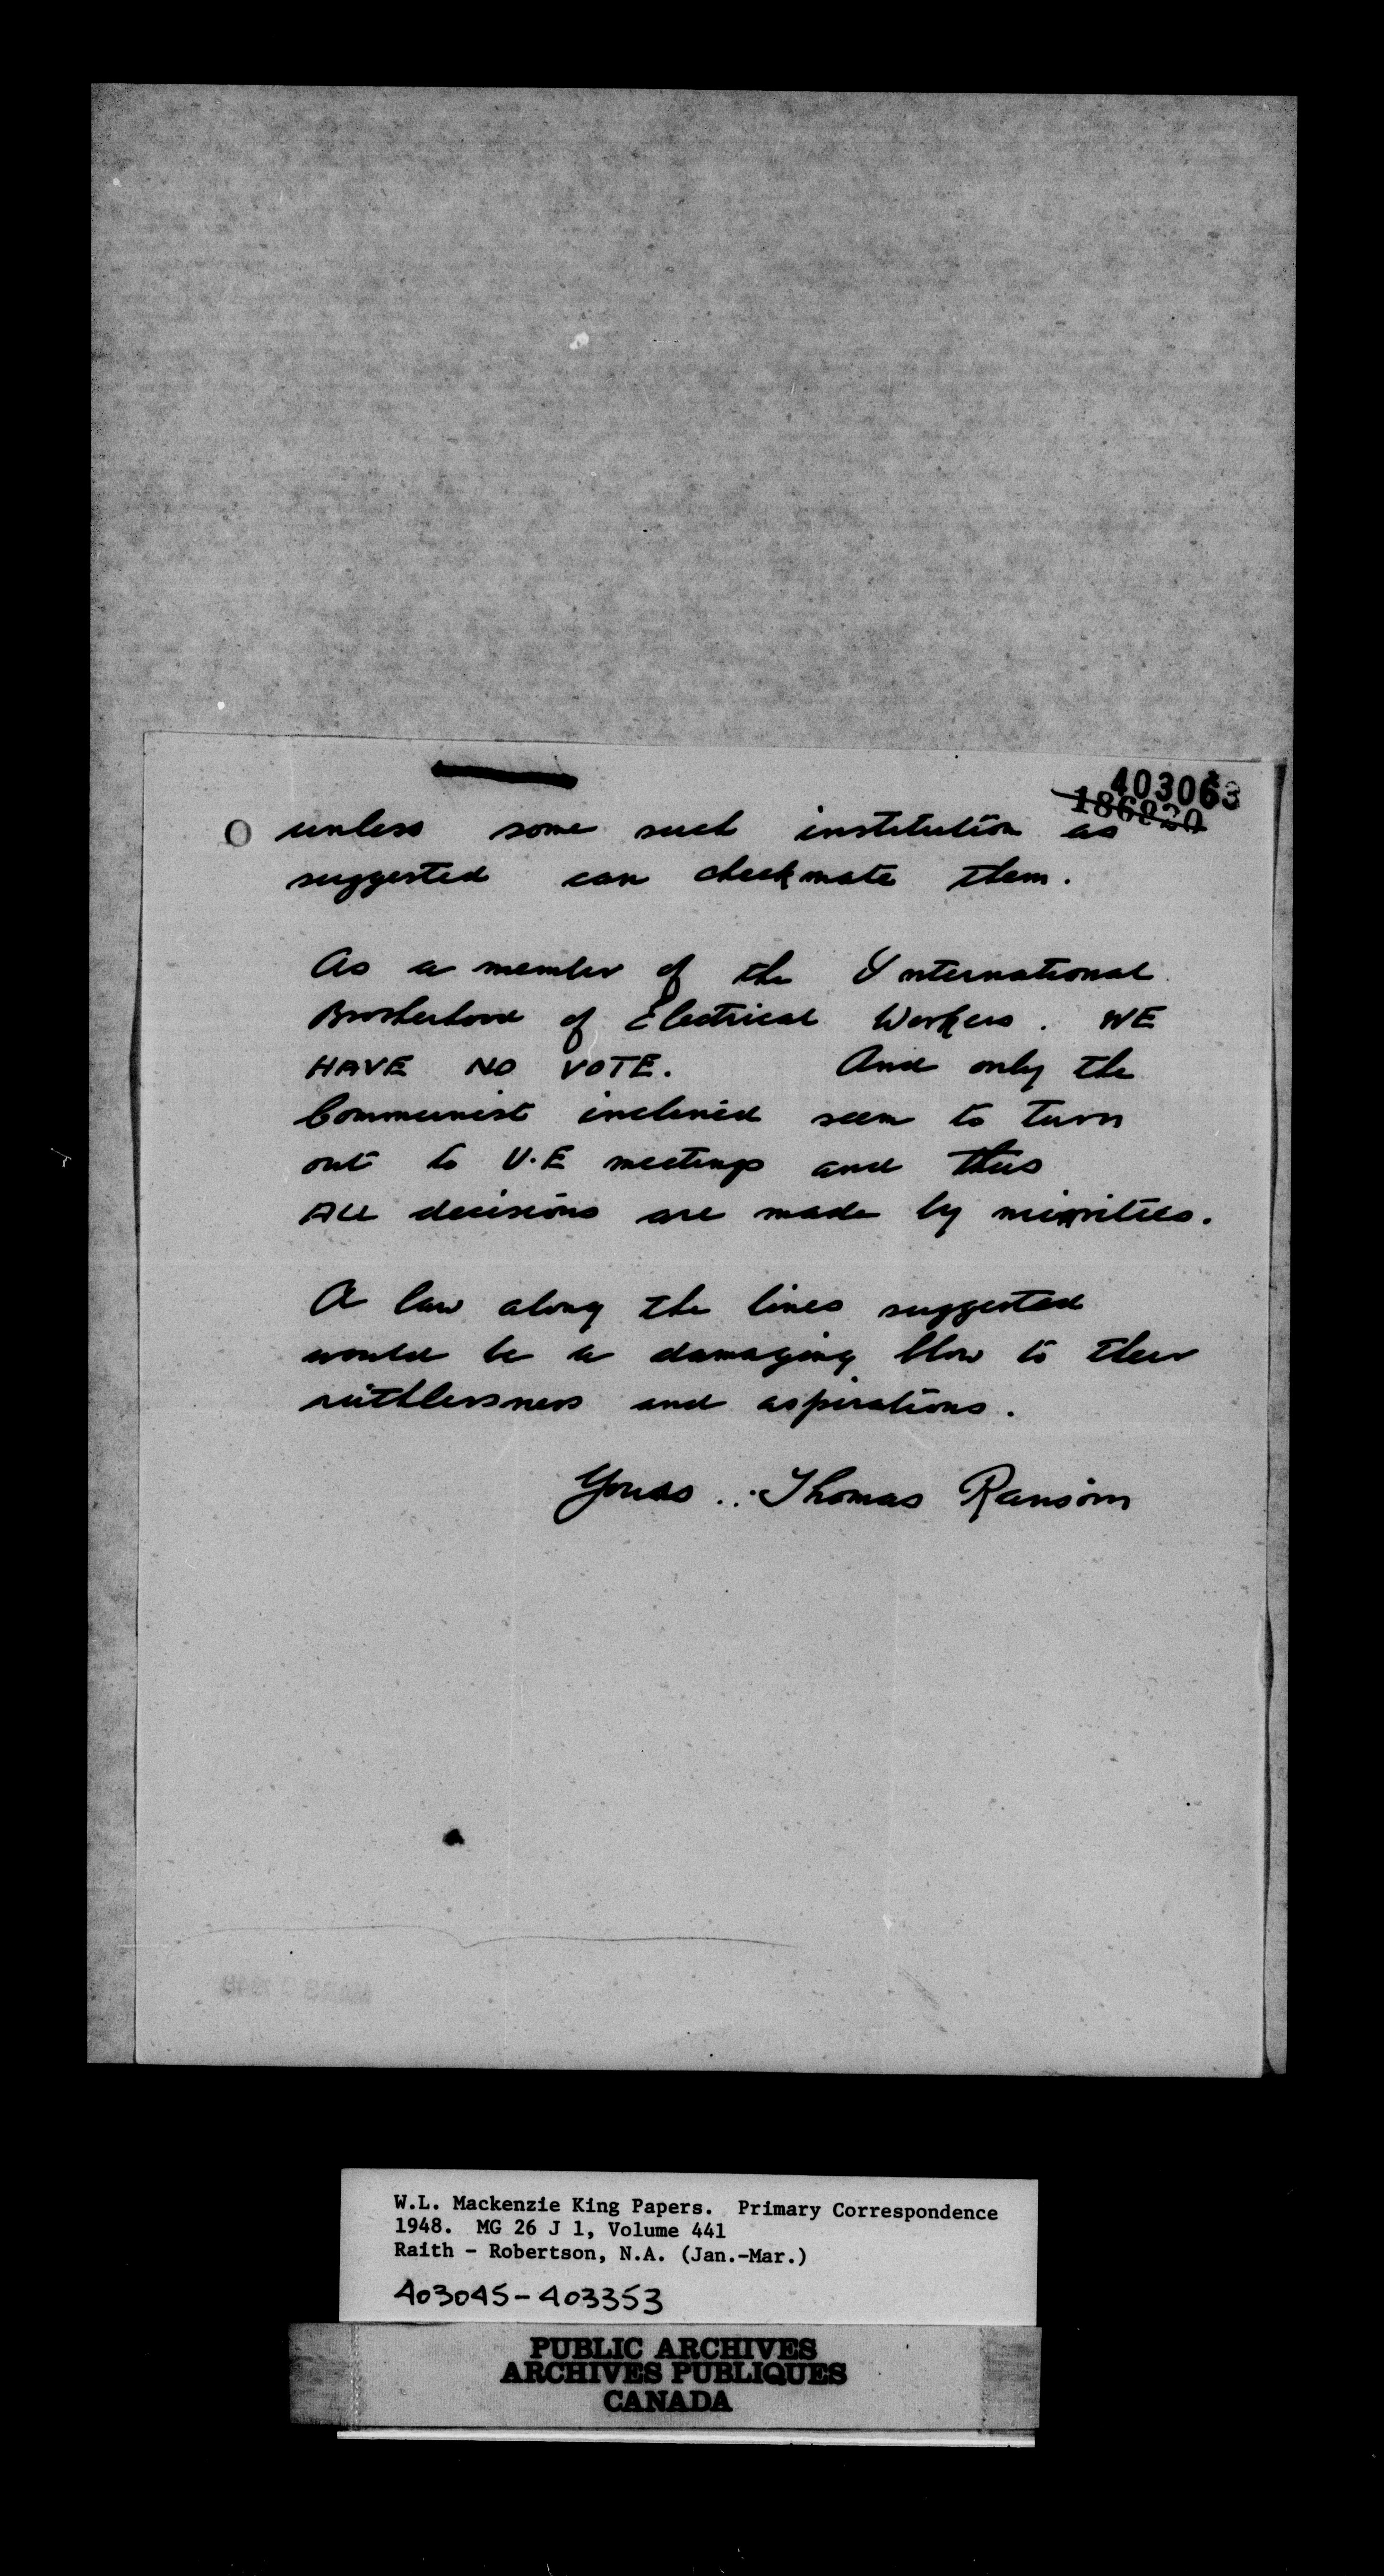 403063
186820
unless some such institution as
suggested can checkmate them.
As a member of the International
Brotherhood of Electrical Workers. WE
HAVE NO VOTE. And only the
Communist inclined seem to turn
out to U.E meetings and thus
ALL decisions are made by minorities.
A law along the lines suggested
would be a damaging blow to their
ruthlessness and aspirations.
Yours ... Thomas Ransom
W.L. Mackenzie King Papers. Primary Correspondence
1948. MG 26 J 1, Volume 441
Raith - Robertson, N.A. (Jan.-Mar.)
403045-403353
PUBLIC ARCHIVES
ARCHIVES PUBLIQUES
CANADA